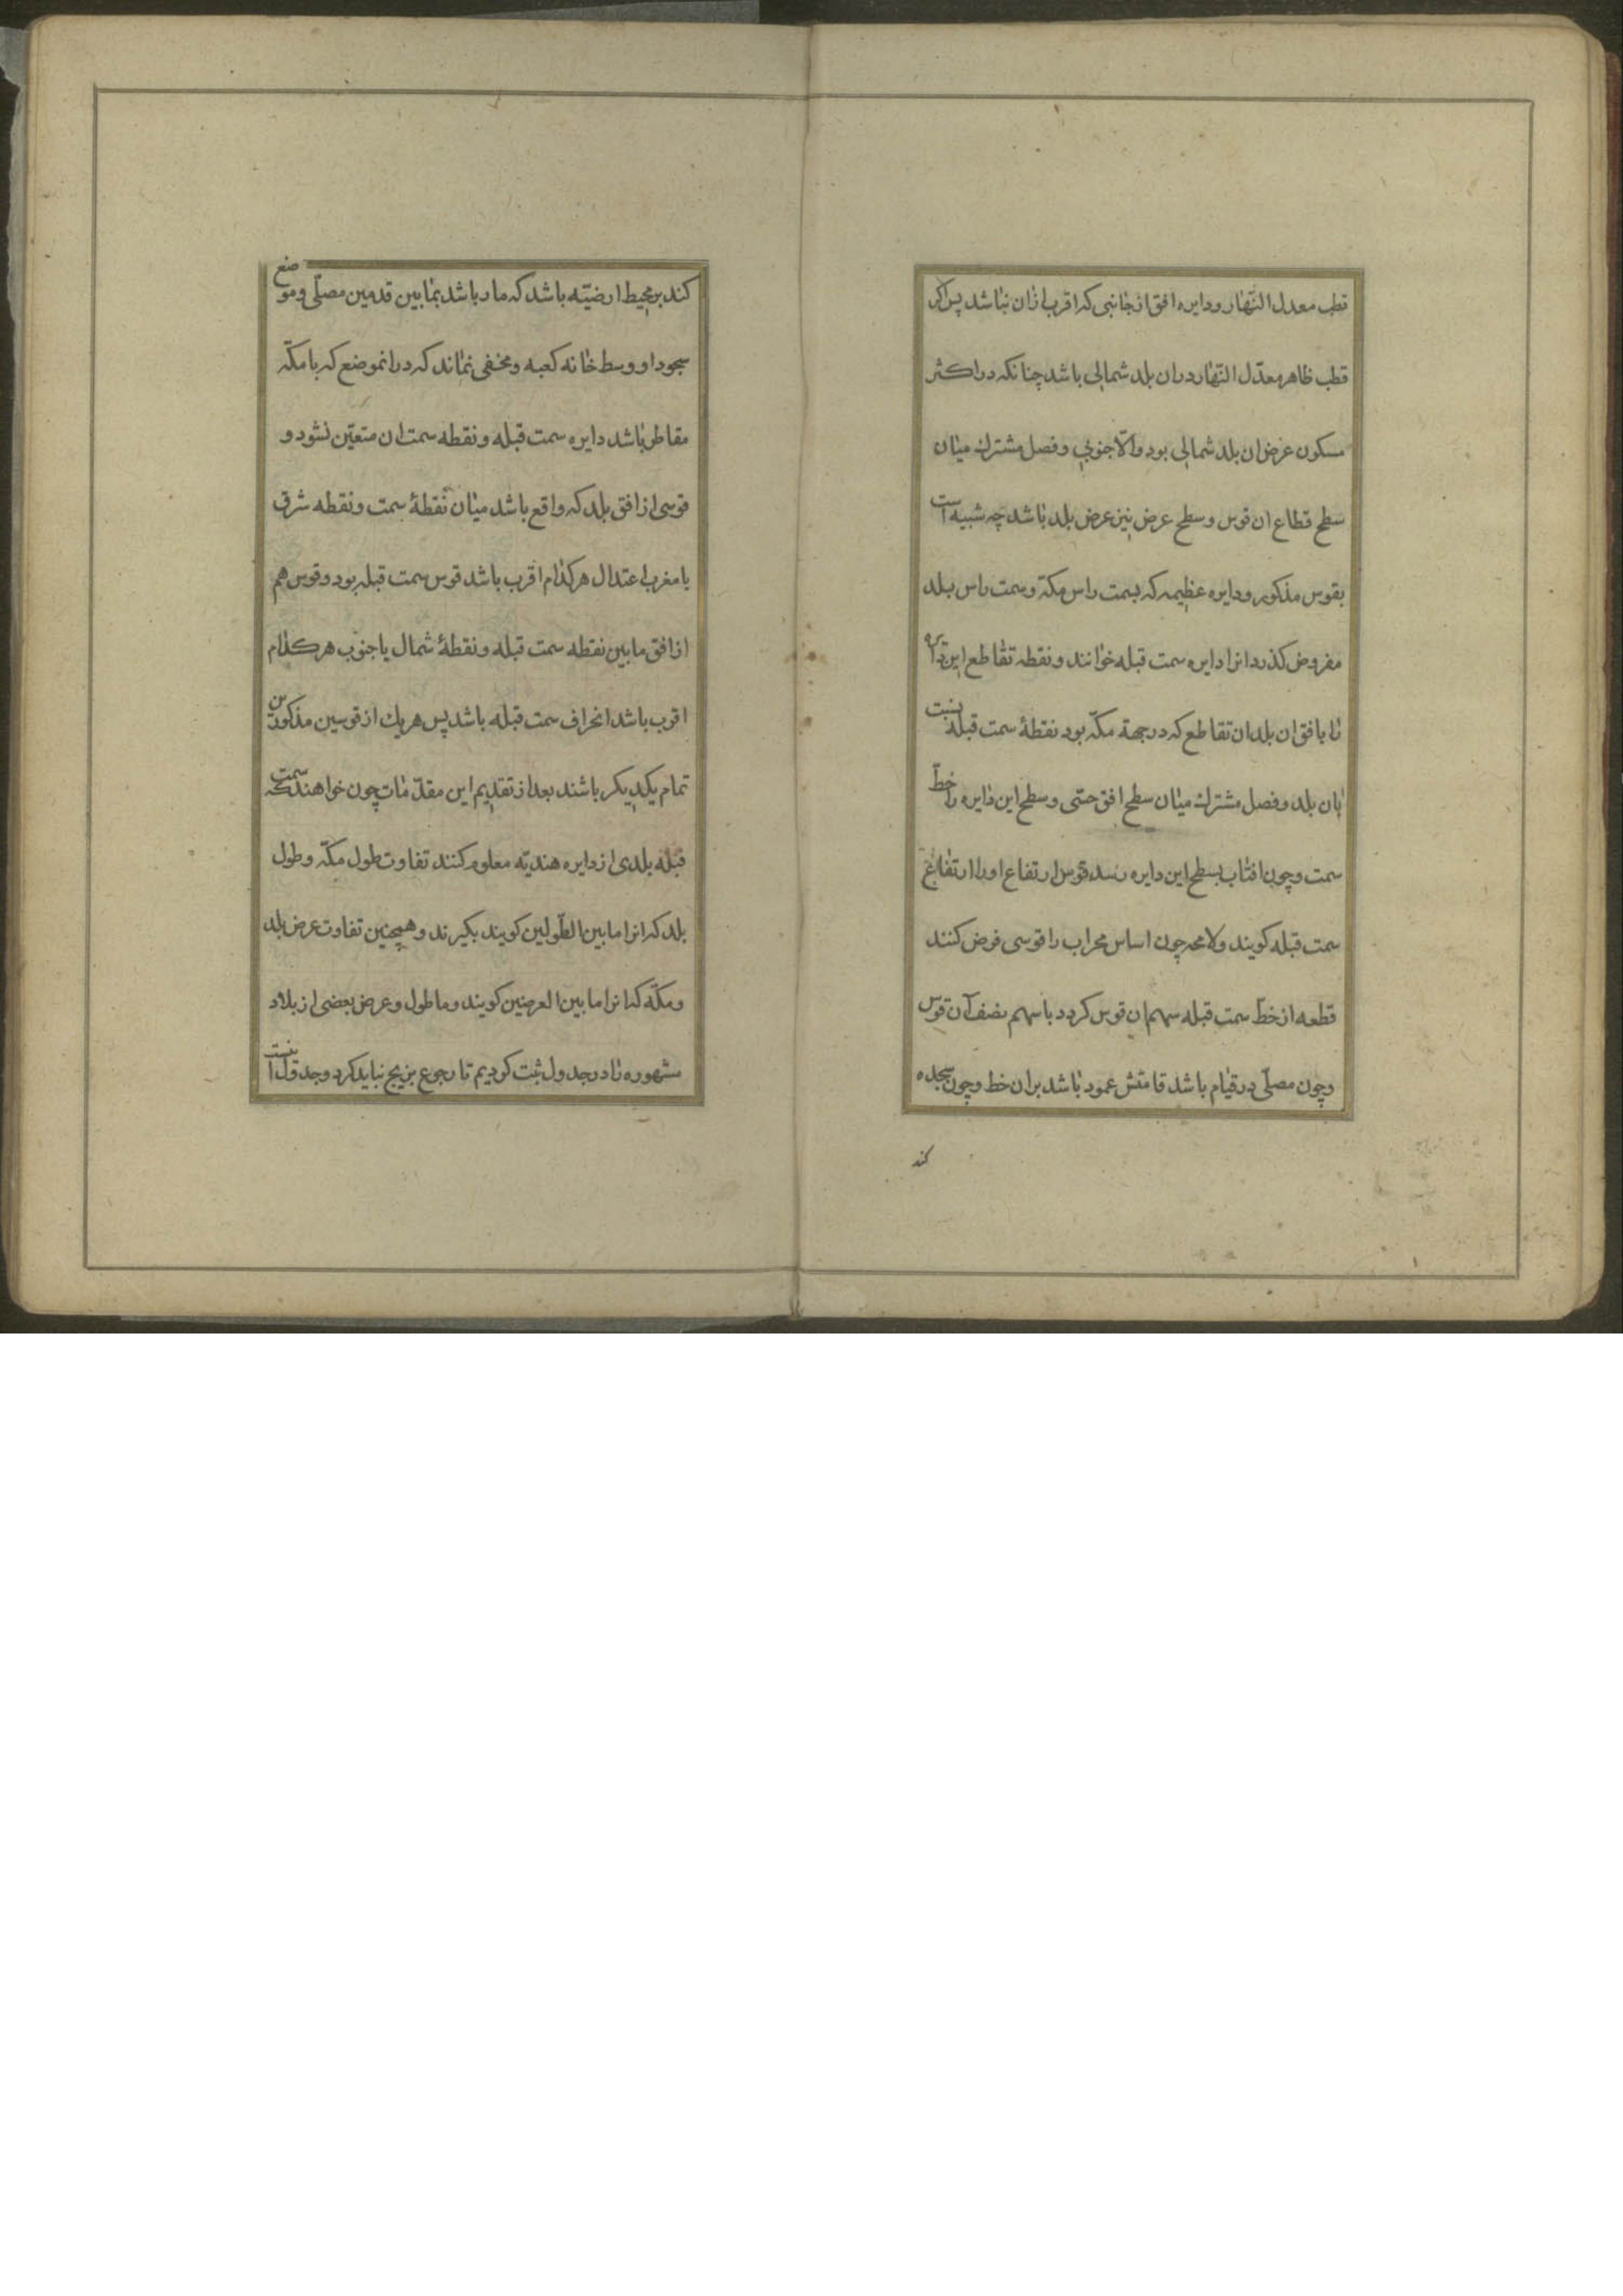 قطب معدل النّهار و دایره افق از جانبی که اقرب ازان نباشد پس اگر
قطب ظاهر معدّل النّهار دران بلد شمالی باشد چنانکه در اکثر
مسکون عرض ان بلد شمالی بود والّا جنوبی و فصل مشترك میان
سطح قطاع ان قوس و سطح عرض نیز عرض بلد باشد چه شبیه است
بقوس مذکور و دایره عظیمه که بسمت راس مکّه و سمت راس بلد
مفروض کذرد انرا دایره سمت قبله خوانند و نقطه تقاطع این دایره
را با افق ان بلد ان تقاطع که در جهة مکّه بود نقطهٔ سمت قبله بنسبت
بان بلد و فصل مشترك میان سطح افق حسّی و سطح این دایره را خطّ
سمت و چون افتاب بسطح این دایره رسد قوس ارتفاع او را ارتفاع
سمت قبله کویند ولا محه چون اساس محراب را قوسی فرض کنند
قطعه از خطّ سمت قبله سهم ان قوس کردد با سهم نصف آن قوس
و چون مصلّی در قیام باشد قامتش عمود باشد بران خط و چون سجده
کند
کند بر محیط ارضیّه باشد که مار باشد بمابین قدمین مصلّی و موضع
سجود او و وسط خانه کعبه و مخفی نماند که در انموضع که با مکّه
مقاطر باشد دایره سمت قبله و نقطه سمت ان متعیّن نشود و
قوسی از افق بلد که واقع باشد میان نقطهٔ سمت و نقطه شرق
یا مغرب اعتدال هرکدام اقرب باشد قوس سمت قبله بود و قوس هم
از افق مابین نقطه سمت قبله و نقطهٔ شمال یا جنوب هرکدام
اقرب باشد انحراف سمت قبله باشد پس هریك از قوسین مذکورین
تمام یکدیکر باشند بعد از تقدیم این مقدّمات چون خواهند که سمت
قبله بلدی از دایره هندیّه معلوم کنند تفاوت طول مکّه و طول
بلد که انرا مابین الطّولین کویند بکیرند و همچنین تفاوت عرض بلد
و مکّه که انرا مابین العرضین کویند و ما طول و عرض بعضی از بلاد
مشهوره را در جدول ثبت کردیم تا رجوع بزیج نباید کرد و جدول اینست